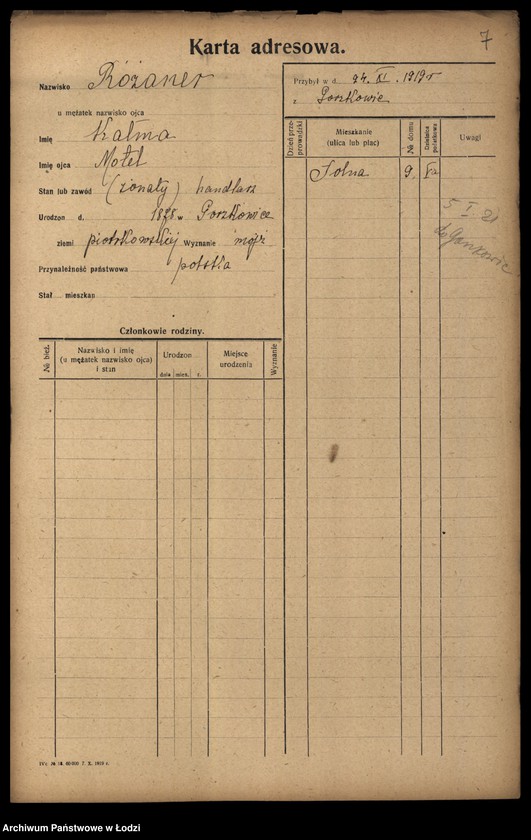 7
Karta adresowa.
Nazwisko Różaner
u mężatek nazwisko ojca
Imię Kalma
Imię ojca Motel
Stan lub zawód (żonaty) handlarz
Urodzon d. w Gorzkowice
ziemi piotrkowskiej Wyznanie mojż
Przynależność państwowa polska
Stał mieszkan
Przybył w d. 24. XI. 1919 r
z Gorzkowic
Dzień przeprowadzki
Mieszkanie
(ulica lub plac)
№ domu
Dzielnica podatkowa
Uwagi
Solna 9
5 I 21
do Gorzkowic
Członkowie rodziny.
№ bież.
Nazwisko i imię
(u mężatek nazwisko ojca)
i stan
Urodzon
dnia mies. r.
Miejsce
urodzenia
Wyznanie
Archiwum Państwowe w Łodzi